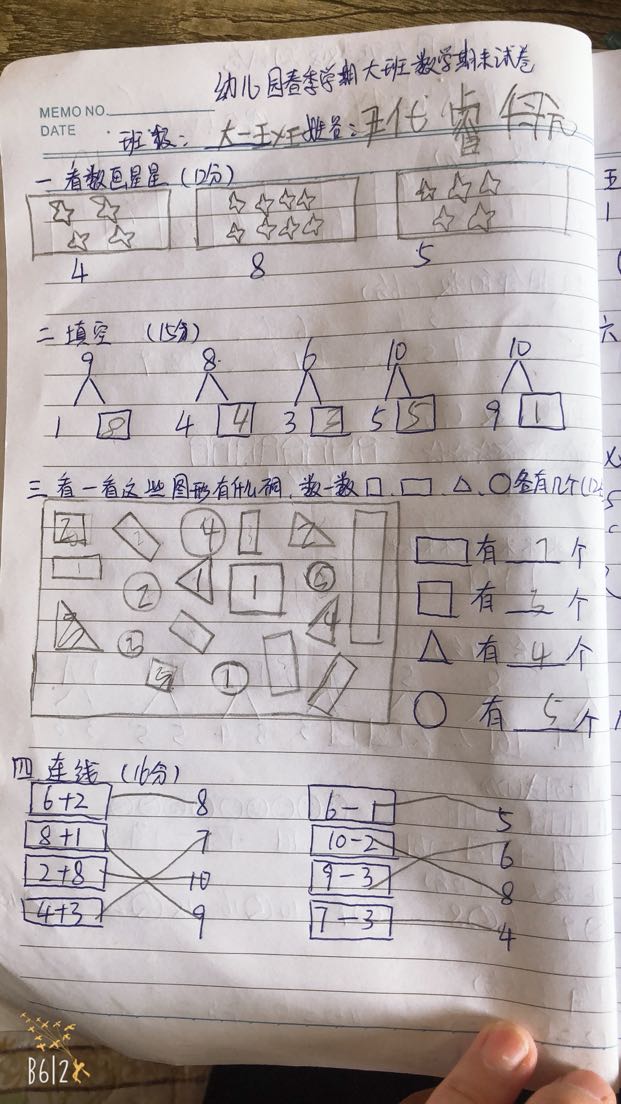 幼儿园春季学期大班数学期末试卷
MEMO NO.
DATE
班级: 大一王 姓名: 王代
一 看数画星星 (12分)
4 8 5
二 填空 (15分)
9 8 6 10 10
1 8 4 4 3 3 5 5 9 1
三 看一看这些图形有什么稠,数一数□、▭、△、○各有几个(12
2 4 2
1 2 1 1 5
3 3 4
3 1
▭ 有 7 个
□ 有 3 个
△ 有 4 个
○ 有 5 个
四 连线 (16分)
6+2 8 6-1 5
8+1 7 10-2 6
2+8 10 9-3 8
4+3 9 7-3 4
五
1
六
B612